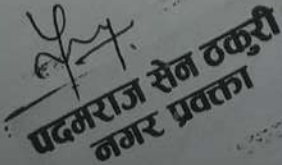 पदमराज सेन ठकुरी
नगर प्रवक्ता